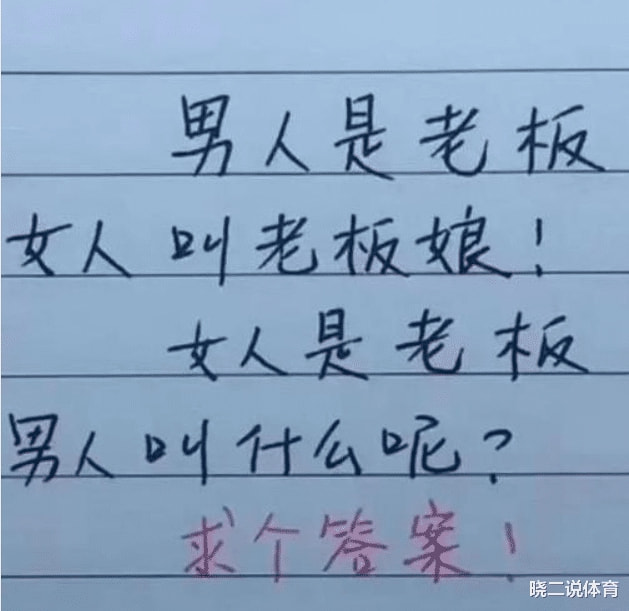 男人是老板
女人叫老板娘!
女人是老板
男人叫什么呢?
求个答案!
晓二说体育